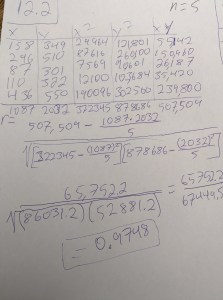 12.2 n=5
x y x² y² xy
158 349 24964 121801 55142
296 510 87616 260100 150960
87 301 7569 90601 26187
110 322 12100 103684 35,420
436 550 190096 302500 239,800
1087 2032 322345 878686 507,509
r= 507,509 - 1087·2032
5
√[322345-(1087)²][878686-(2032)²]
5 5
65,752.2 = 65752.2
√(86031.2)(52881.2) 67449.5
= 0.9748